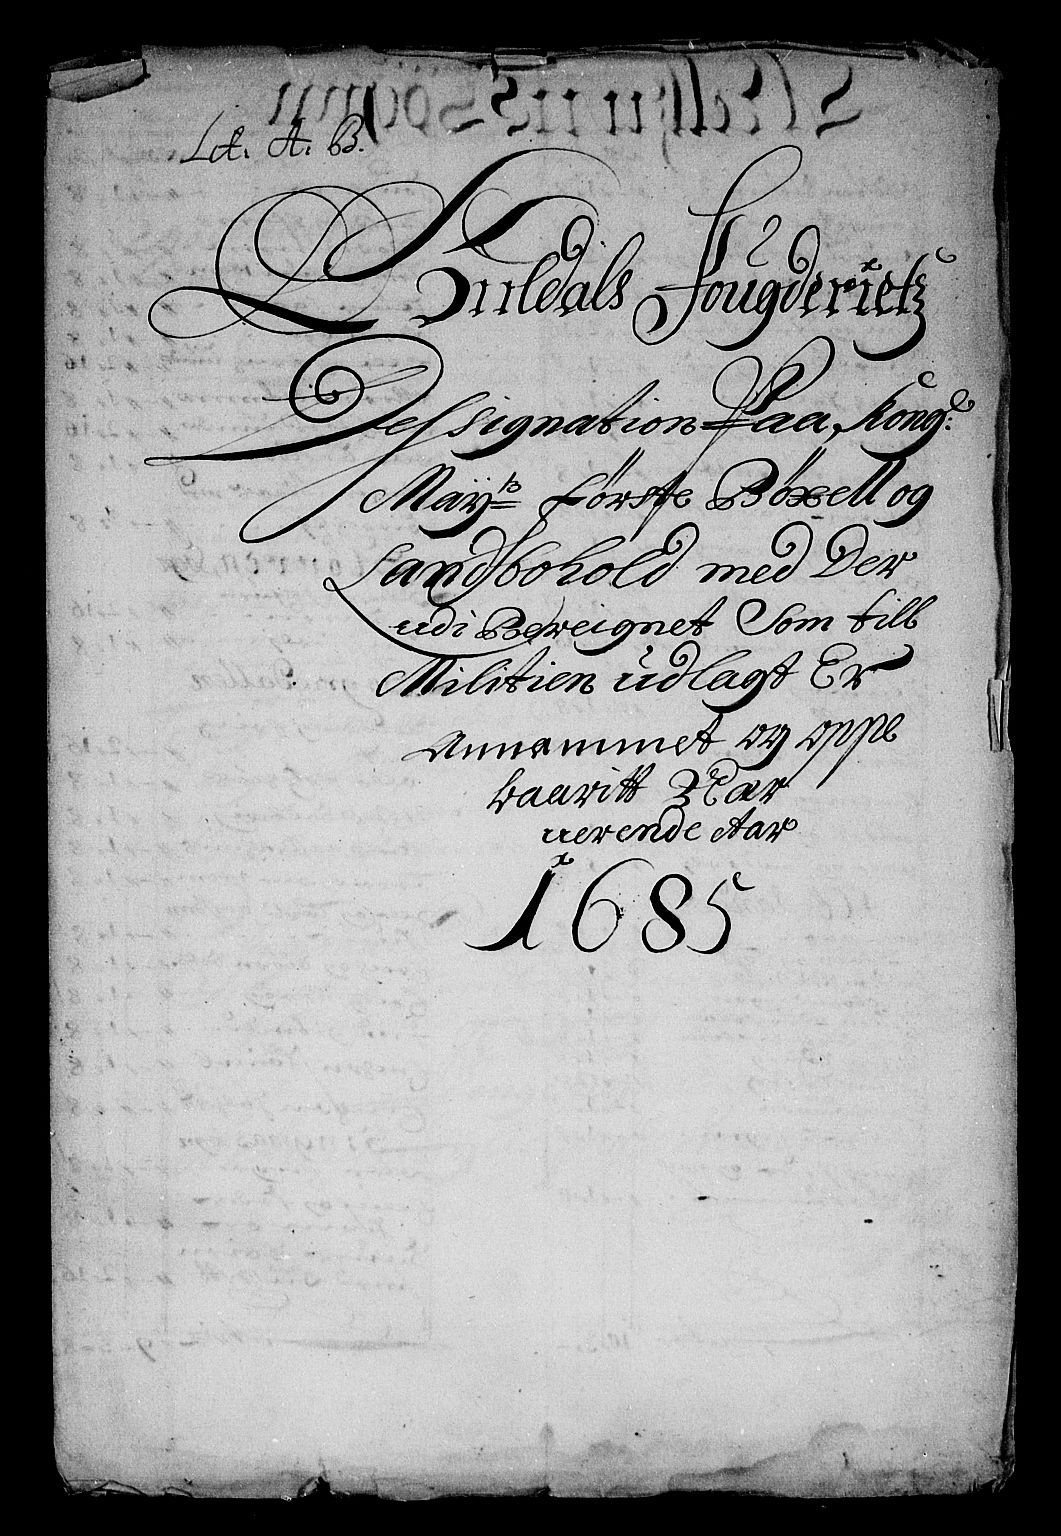 Lit. A. B.
Guldals Fougderietz
Dessignation Paa Kongl:
Mayts. Første Bøxell og
Landbohold med Der
udi Bereignet Som till
Militien udlagt Er
Annammet og oppe
baaritt Nær
uerende Aar
1685